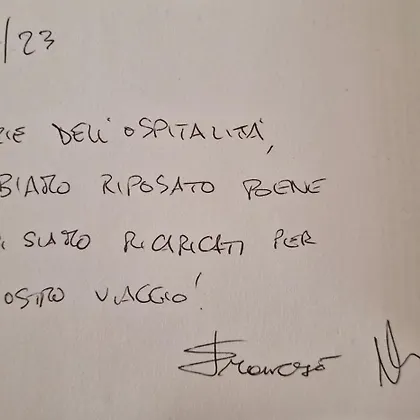 /23
IE DELL'OSPITALITÀ,
BIAMO RIPOSATO BENE
I SIAMO RICARICATI PER
OSTRO VIAGGIO!
Francesco